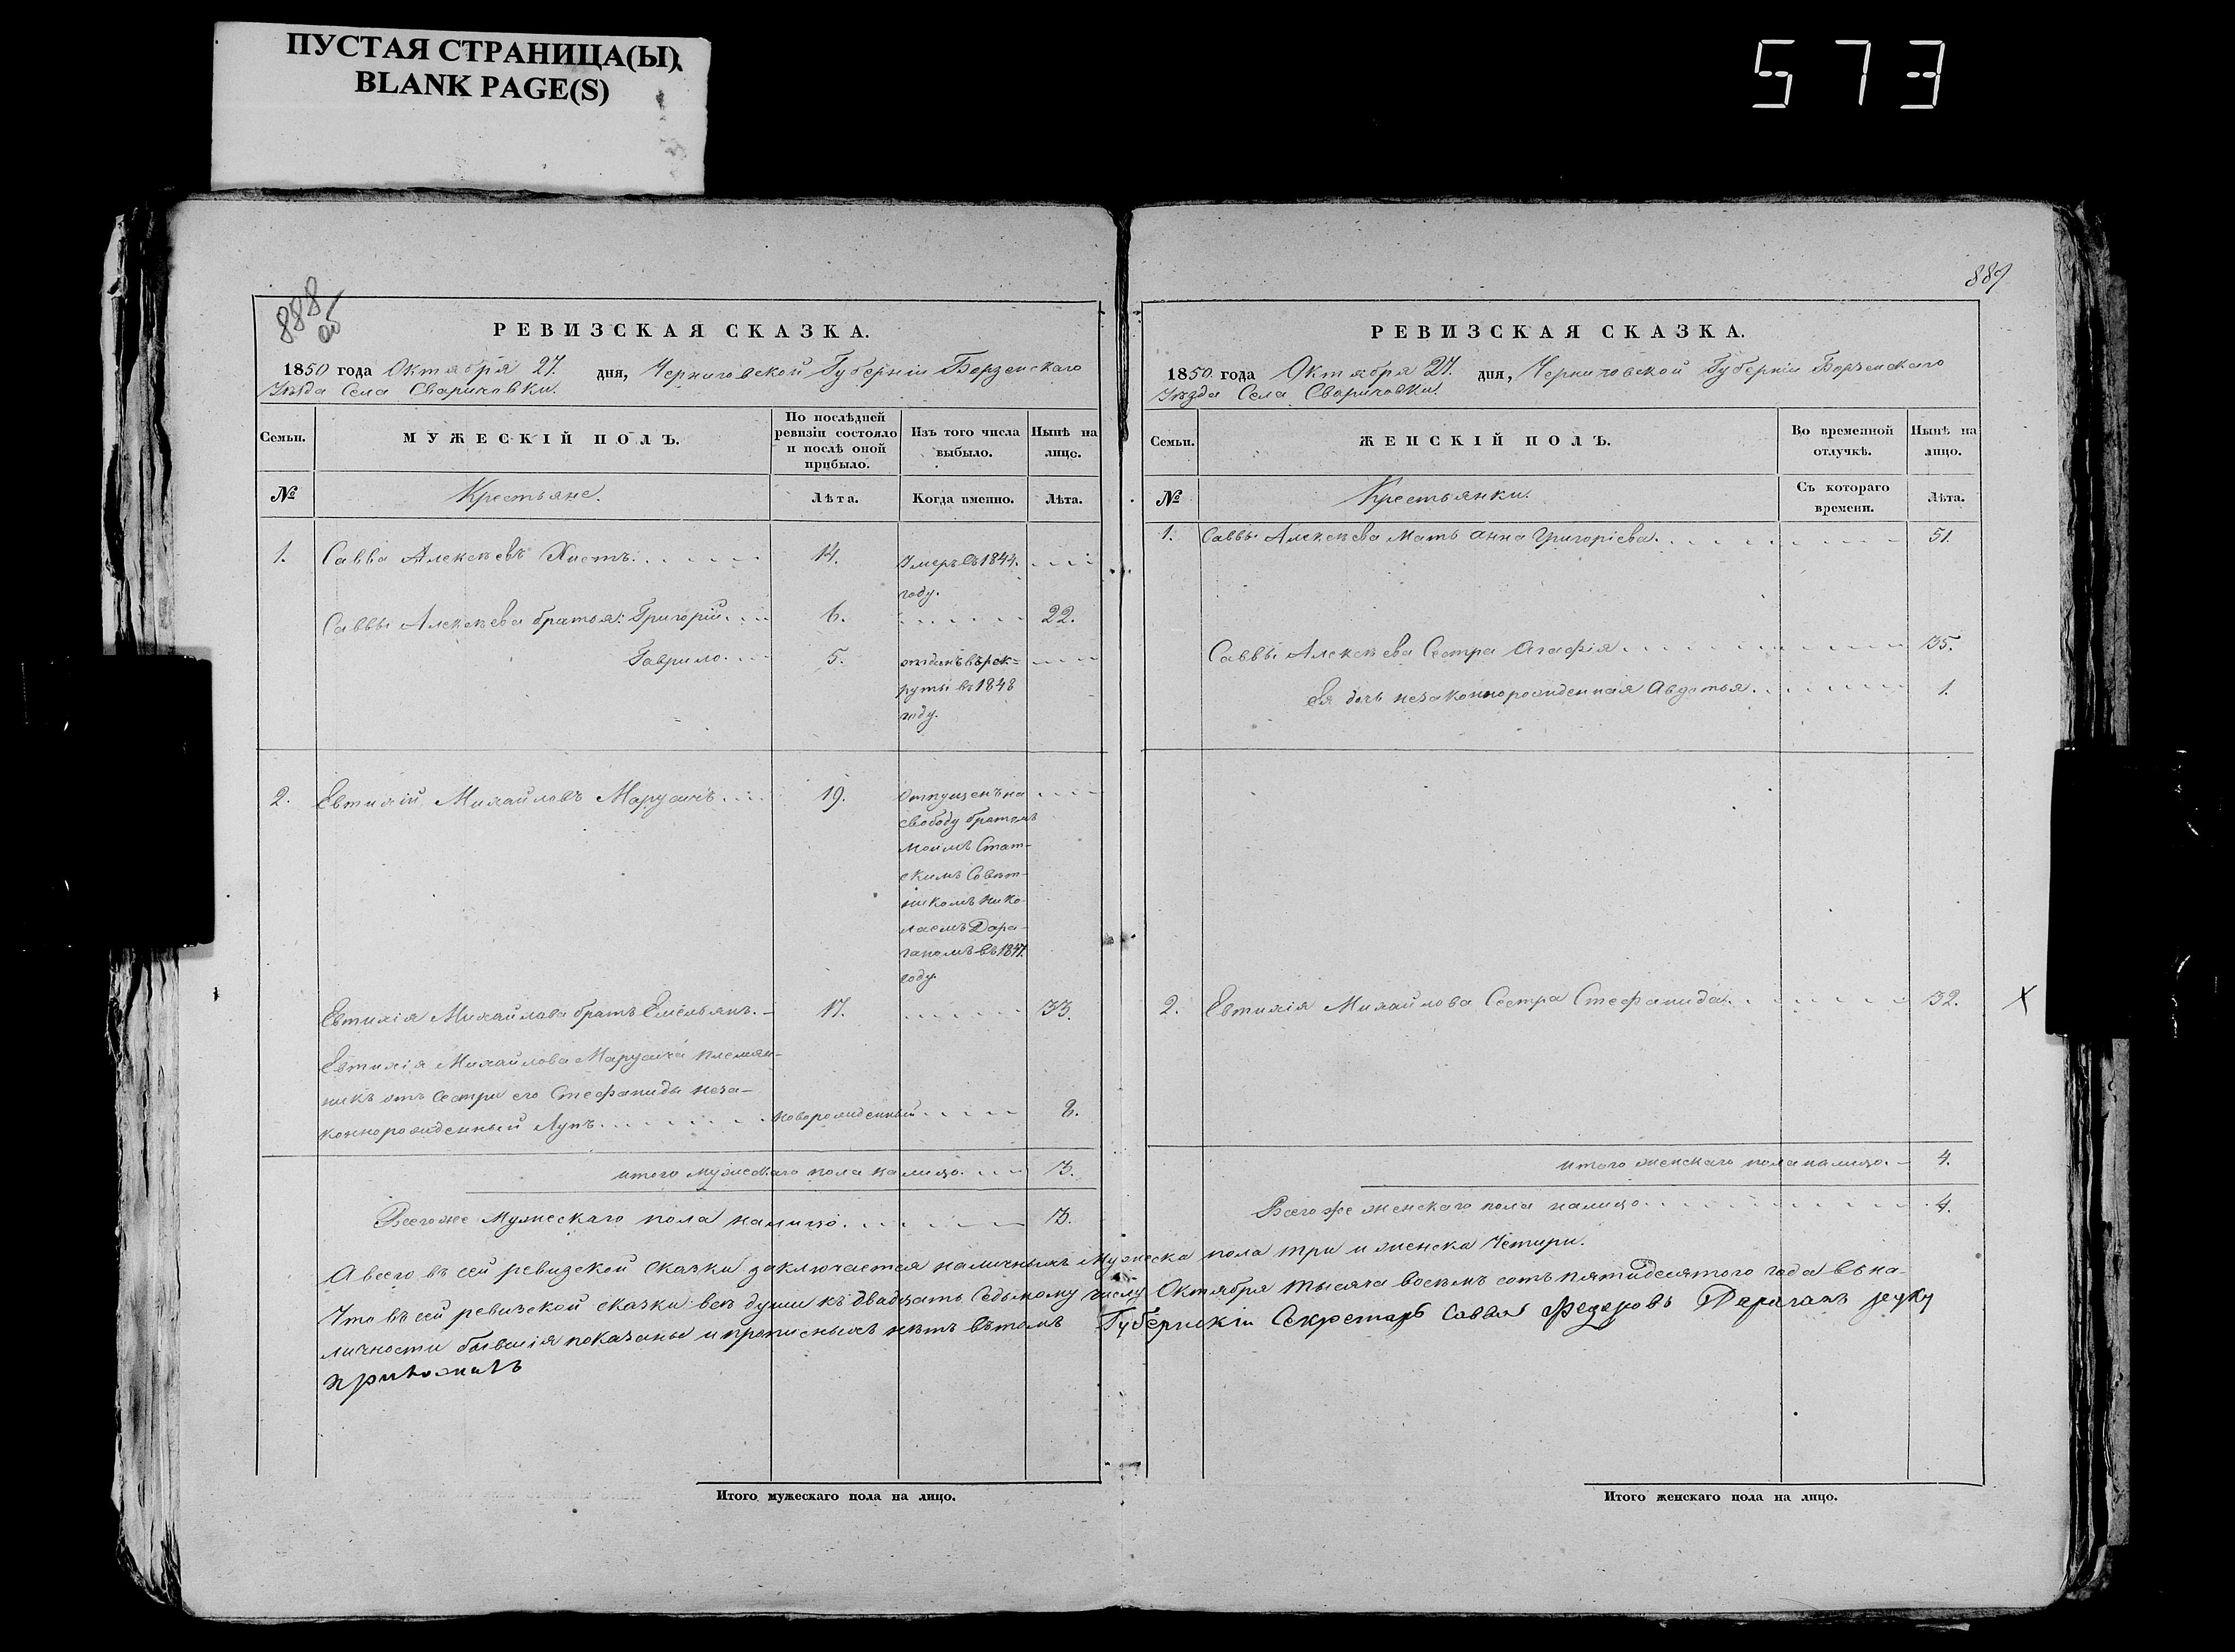 ПУСТАЯ СТРАНИЦА(Ы)
BLANK PAGE(S)
573
888
об
РЕВИЗСКАЯ СКАЗКА.
1850 года Октября 27. дня, Черниговской Губерніи Борзенскаго
Уѣзда Села Свариковки.
Семьи.
МУЖЕСКІЙ ПОЛЪ.
По послѣдней ревизіи состояло и послѣ оной прибыло.
Изъ того числа выбыло.
Нынѣ на лицо.
№
Крестьяне.
Лѣта.
Когда именно.
Лѣта.
1. Савва Алексѣевъ Хистъ. 14. Умеръ въ 1844.
году.
Саввы Алексѣева братья: Григорій. 6. 22.
Гаврило. 5. отданъ въ рек-
руты въ 1848
году.
2. Евтихій Михайловъ Марусичъ. 19. Отпущенъ на
свободу братомъ
моимъ Стат-
скимъ Совѣт-
никомъ Нико-
лаемъ Дара-
ганомъ въ 1847.
году.
Евтихія Михайлова братъ Емельянъ. 17. 33.
Евтихія Михайлова Марусича племян-
никъ отъ Сестры его Стефаниды неза-
коннорожденный Лупъ. новорожденный 8.
итого мужескаго пола налицо. 3.
Всего же мужескаго пола налицо. 3.
889
РЕВИЗСКАЯ СКАЗКА.
1850 года Октября 27. дня, Черниговской Губерніи Борзенскаго
Уѣзда Села Свариковки.
Семьи.
ЖЕНСКІЙ ПОЛЪ.
Во временной отлучкѣ.
Нынѣ на лицо.
№
Крестьянки.
Съ котораго времени.
Лѣта.
1. Саввы Алексѣева Мать Анна Григоріева. 51.
Саввы Алексѣева Сестра Агафія 35.
Ея дочь незаконнорожденная Авдотья. 1.
2. Евтихія Михайлова Сестра Стефанида. 32. X
итого женскаго пола налицо. 4.
Всего же женскаго пола налицо. 4.
А всего въ сей ревизской сказки заключается наличныхъ мужеска пола три и женска четыри.
Что въ сей ревизской сказки всѣ души къ двадцать седьмому числу Октября тысяча восемь сотъ пятидесятого года въ на-
личности бывшія показаны и прописныхъ нѣтъ въ томъ Губернскій Секретарь Савва Федоровъ Дараганъ руку
приложилъ
Итого мужескаго пола на лицо.
Итого женскаго пола на лицо.